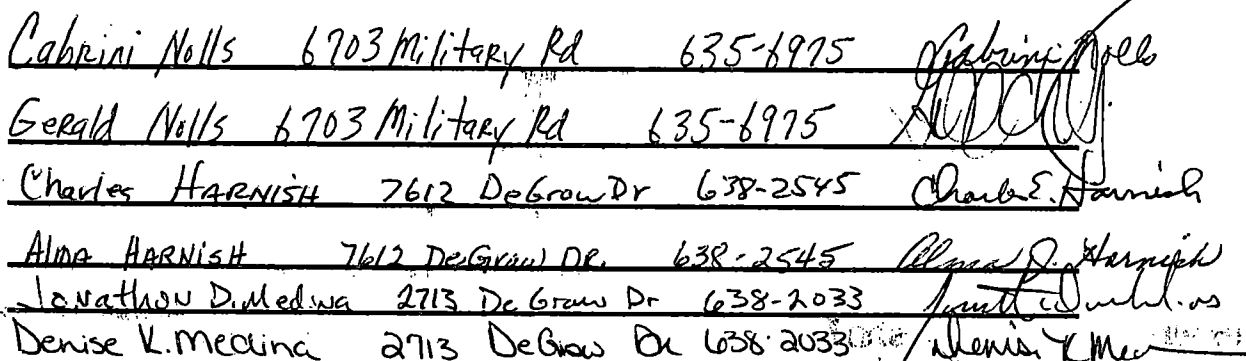 Cabrini Nolls 6703 Military Rd 635-6975 Cabrini Nolls
Gerald Nolls 6703 Military Rd 635-6975
Charles HARNISH 7612 DeGraw Dr 638-2545 Charles E. Harnish
Alma HARNISH 7612 DeGraw DR. 638-2545 Alma J. Harnish
Jonathon D. Medina 2713 De Graw Dr 638-2033
Denise K. Medina 2713 DeGraw Dr 638-2033 Denise K Me